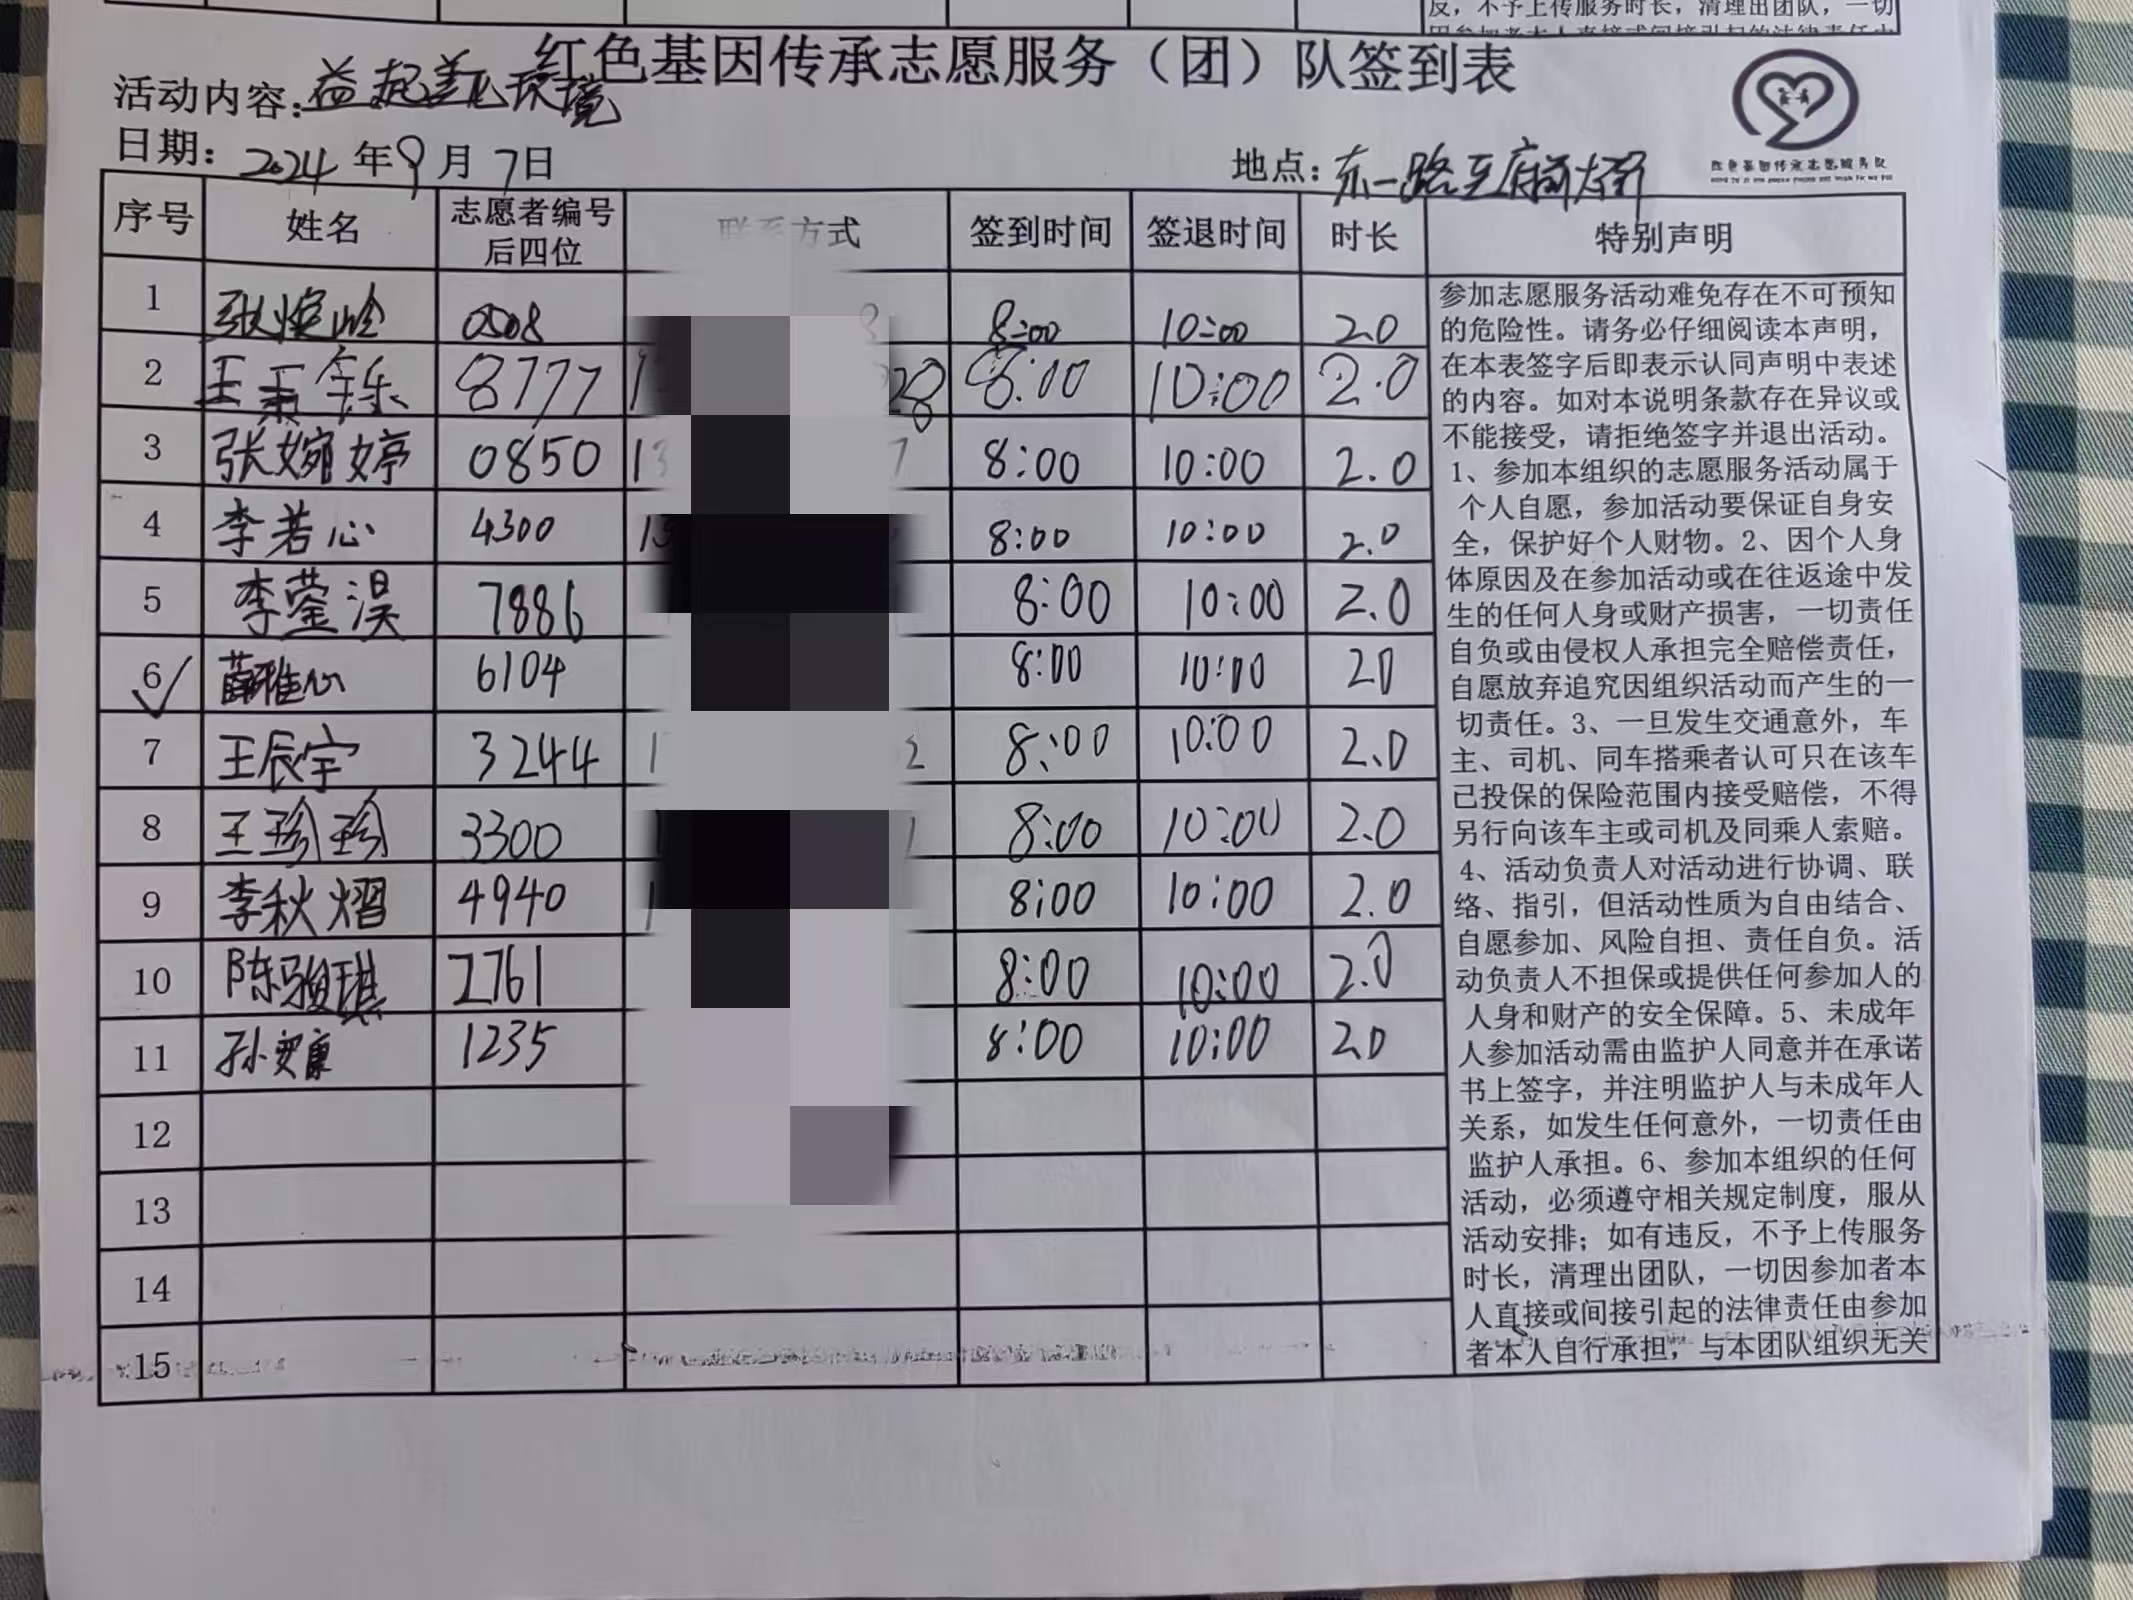 反，不予上传服务时长，清理出团队，一切
红色基因传承志愿服务（团）队签到表
活动内容：益起美化环境
日期：2024年9月7日
地点：东一路王府前大街
红色基因传承志愿服务队
序号 姓名 志愿者编号后四位 联系方式 签到时间 签退时间 时长 特别声明
1 0508 8:00 10:00 2.0
2 8777 1 28 8:00 10:00 2.0
3 张婉婷 0850 13 7 8:00 10:00 2.0
4 李若心 4300 13 8:00 10:00 2.0
5 李蓥淏 7886 8:00 10:00 2.0
6 薛雅心 6104 8:00 10:00 20
7 王辰宇 3244 1 2 8:00 10:00 2.0
8 王珍珍 3300 1 1 8:00 10:00 2.0
9 李秋熠 4940 1 8:00 10:00 2.0
10 陈骏琪 2761 8:00 10:00 2.0
11 孙奕康 1235 8:00 10:00 2.0
12
13
14
15
参加志愿服务活动难免存在不可预知
的危险性。请务必仔细阅读本声明，
在本表签字后即表示认同声明中表述
的内容。如对本说明条款存在异议或
不能接受，请拒绝签字并退出活动。
1、参加本组织的志愿服务活动属于
个人自愿，参加活动要保证自身安
全，保护好个人财物。2、因个人身
体原因及在参加活动或在往返途中发
生的任何人身或财产损害，一切责任
自负或由侵权人承担完全赔偿责任，
自愿放弃追究因组织活动而产生的一
切责任。3、一旦发生交通意外，车
主、司机、同车搭乘者认可只在该车
已投保的保险范围内接受赔偿，不得
另行向该车主或司机及同乘人索赔。
4、活动负责人对活动进行协调、联
络、指引，但活动性质为自由结合、
自愿参加、风险自担、责任自负。活
动负责人不担保或提供任何参加人的
人身和财产的安全保障。5、未成年
人参加活动需由监护人同意并在承诺
书上签字，并注明监护人与未成年人
关系，如发生任何意外，一切责任由
监护人承担。6、参加本组织的任何
活动，必须遵守相关规定制度，服从
活动安排；如有违反，不予上传服务
时长，清理出团队，一切因参加者本
人直接或间接引起的法律责任由参加
者本人自行承担，与本团队组织无关